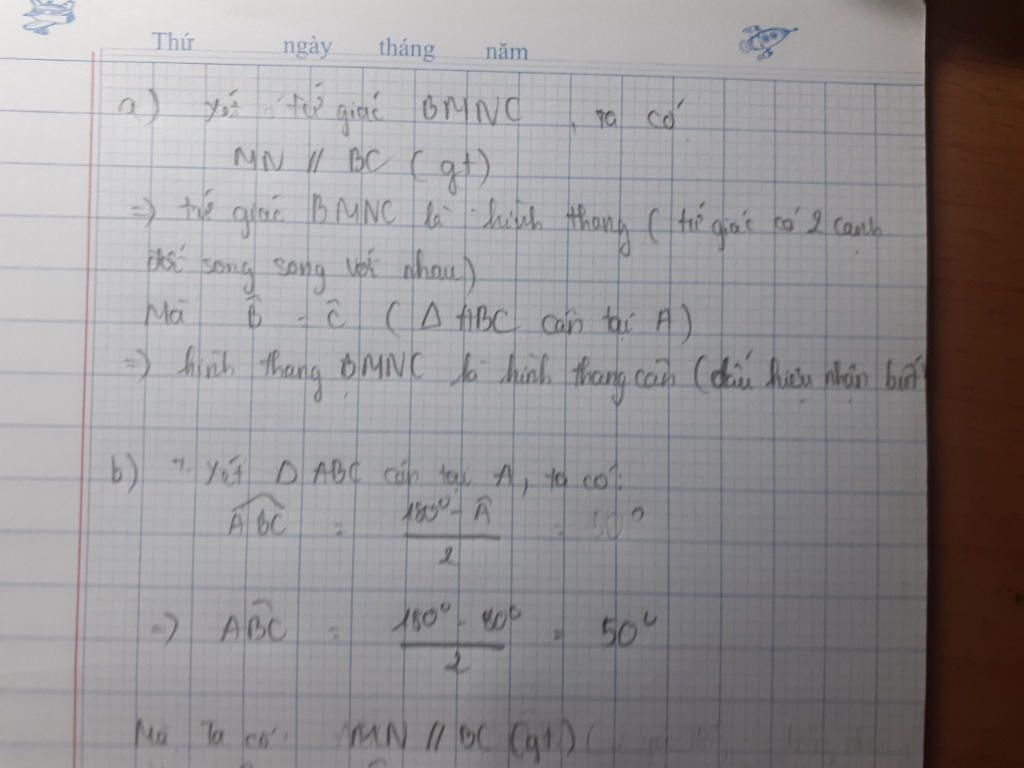 Thứ ngày tháng năm
a) Xét tứ giác BMNC, ta có
MN // BC (gt)
=> tứ giác BMNC là hình thang (tứ giác có 2 cạnh
đối song song với nhau)
Mà B̂ = Ĉ (Δ ABC cân tại A)
=> hình thang BMNC là hình thang cân (dấu hiệu nhận biết
b) Xét Δ ABC cân tại A, ta có:
ABC = (180° - Â) / 2 = 50°
=> ABC = (180° - 80°) / 2 = 50°
Mà ta có: MN // BC (gt) (